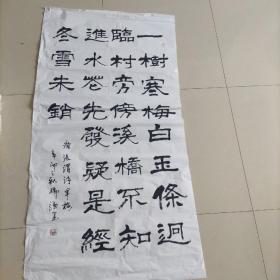 一樹寒梅白玉條迥
臨村旁傍溪橋不知
進水花先發疑是經
冬雪未銷
張渭詩早梅
辛卯之秋